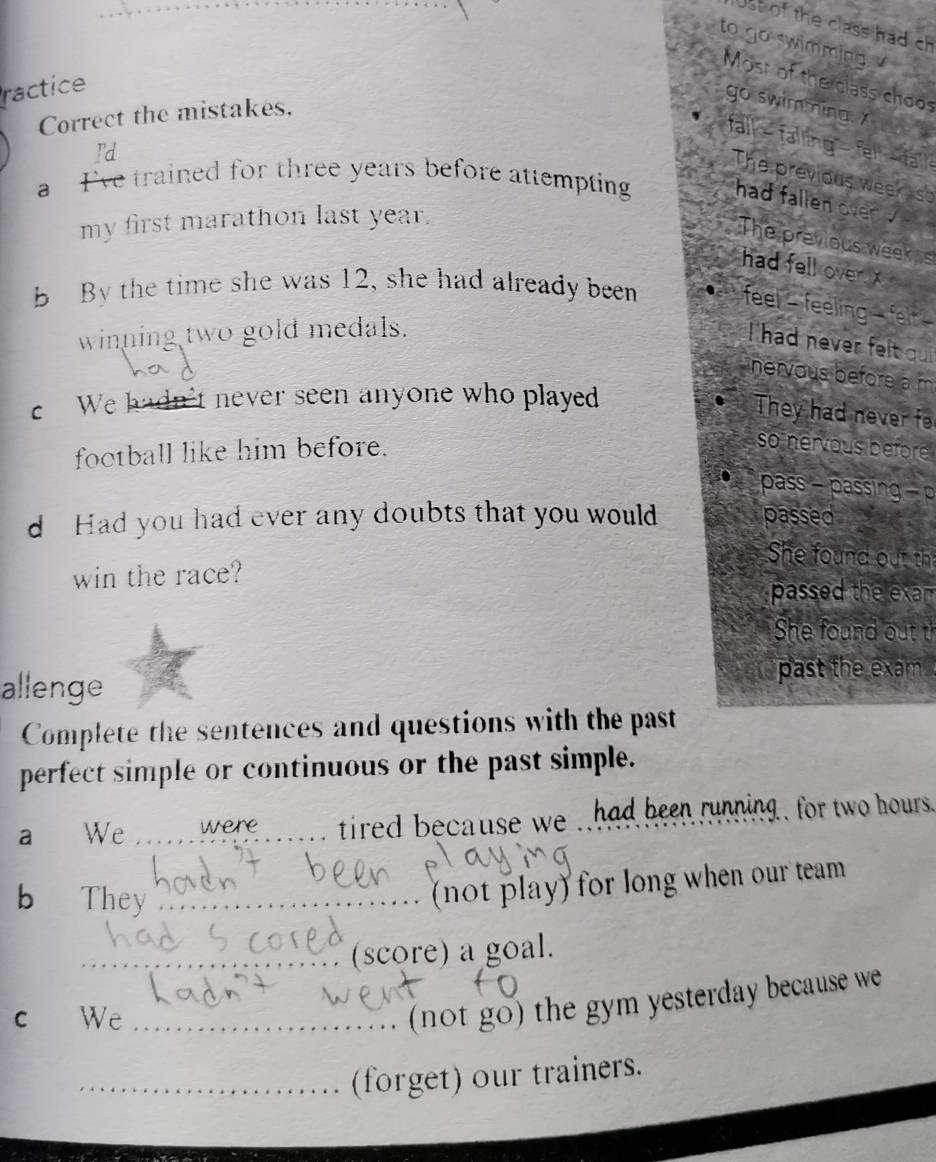 ractice
Correct the mistakes.
I'd
a I've trained for three years before attempting
my first marathon last year.
b By the time she was 12, she had already been
winning two gold medals.
had
c We hadn't never seen anyone who played
football like him before.
d Had you had ever any doubts that you would
win the race?
allenge
Complete the sentences and questions with the past
perfect simple or continuous or the past simple.
a We ..... were ...... tired because we ..had been running.. for two hours.
hadn't been playing
b They ........................ (not play) for long when our team
had scored
........................ (score) a goal.
hadn't went to
c We ........................ (not go) the gym yesterday because we
........................ (forget) our trainers.
of the class had ch
to go swimming ✓
Most of the class choos
go swimming X
• fall – falling – fell – falle
The previous week, s
had fallen over ✓
The previous week, s
had fell over X
• feel – feeling – felt –
I had never felt qui
nervous before a m
• They had never fe
so nervous before
• pass – passing – p
passed
She found out tha
passed the exam
She found out th
past the exam